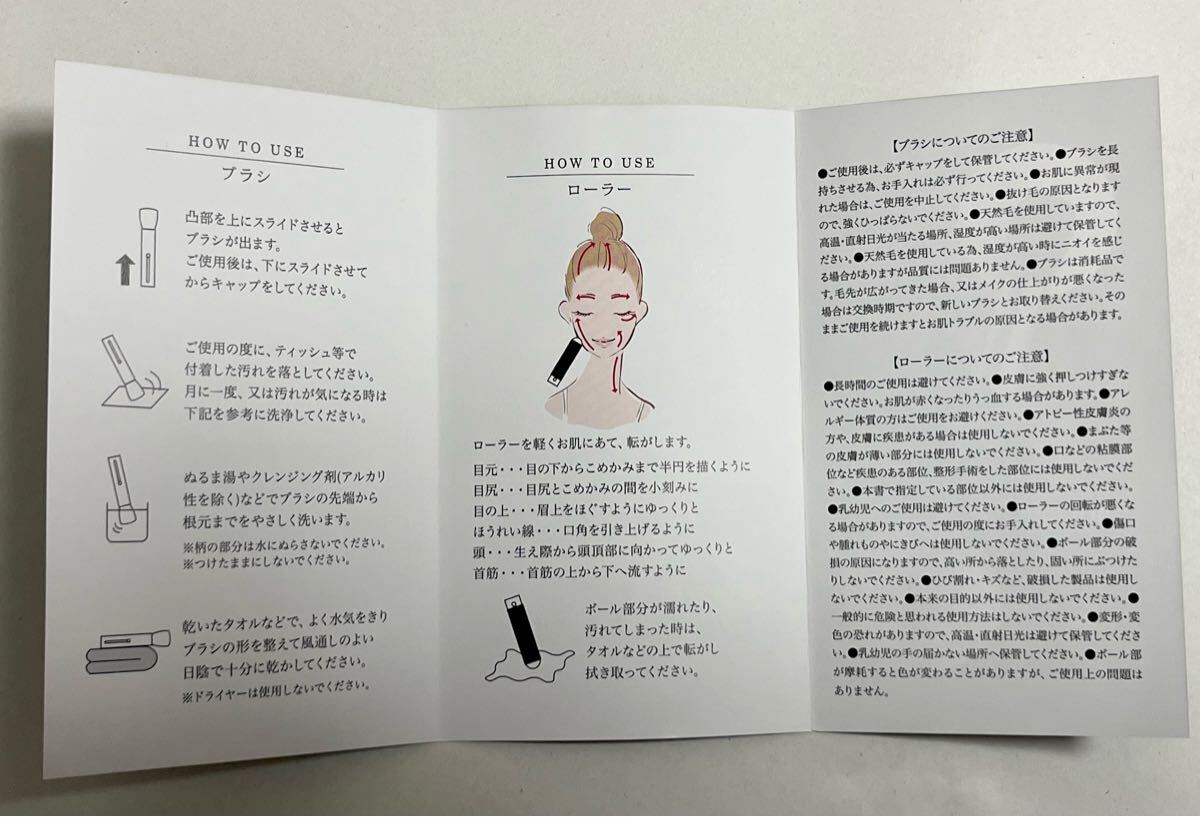 HOW TO USE
ブラシ
凸部を上にスライドさせると
ブラシが出ます。
ご使用後は、下にスライドさせて
からキャップをしてください。
ご使用の度に、ティッシュ等で
付着した汚れを落としてください。
月に一度、又は汚れが気になる時は
下記を参考に洗浄してください。
ぬるま湯やクレンジング剤(アルカリ
性を除く)などでブラシの先端から
根元までをやさしく洗います。
※柄の部分は水にぬらさないでください。
※つけたままにしないでください。
乾いたタオルなどで、よく水気をきり
ブラシの形を整えて風通しのよい
日陰で十分に乾かしてください。
※ドライヤーは使用しないでください。
HOW TO USE
ローラー
ローラーを軽くお肌にあて、転がします。
目元・・・目の下からこめかみまで半円を描くように
目尻・・・目尻とこめかみの間を小刻みに
目の上・・・眉上をほぐすようにゆっくりと
ほうれい線・・・口角を引き上げるように
頭・・・生え際から頭頂部に向かってゆっくりと
首筋・・・首筋の上から下へ流すように
ボール部分が濡れたり、
汚れてしまった時は、
タオルなどの上で転がし
拭き取ってください。
【ブラシについてのご注意】
●ご使用後は、必ずキャップをして保管してください。●ブラシを長
持ちさせる為、お手入れは必ず行ってください。●お肌に異常が現
れた場合は、ご使用を中止してください。●抜け毛の原因となります
ので、強くひっぱらないでください。●天然毛を使用していますので、
高温・直射日光が当たる場所、湿度が高い場所は避けて保管してく
ださい。●天然毛を使用している為、湿度が高い時にニオイを感じ
る場合がありますが品質には問題ありません。●ブラシは消耗品で
す。毛先が広がってきた場合、又はメイクの仕上がりが悪くなった
場合は交換時期ですので、新しいブラシとお取り替えください。その
ままご使用を続けますとお肌トラブルの原因となる場合があります。
【ローラーについてのご注意】
●長時間のご使用は避けてください。●皮膚に強く押しつけすぎな
いでください。お肌が赤くなったりうっ血する場合があります。●アレ
ルギー体質の方はご使用をお避けください。●アトピー性皮膚炎の
方や、皮膚に疾患がある場合は使用しないでください。●まぶた等
の皮膚が薄い部分には使用しないでください。●口などの粘膜部
位など疾患のある部位、整形手術をした部位には使用しないでくださ
い。●本書で指定している部位以外には使用しないでください。
●乳幼児へのご使用は避けてください。●ローラーの回転が悪くな
る場合がありますので、ご使用の度にお手入れしてください。●傷口
や腫れものやにきびへは使用しないでください。●ボール部分の破
損の原因になりますので、高い所から落としたり、固い所にぶつけた
りしないでください。●ひび割れ・キズなど、破損した製品は使用し
ないでください。●本来の目的以外には使用しないでください。●
一般的に危険と思われる使用方法はしないでください。●変形・変
色の恐れがありますので、高温・直射日光は避けて保管してくださ
い。●乳幼児の手の届かない場所へ保管してください。●ボール部
が摩耗すると色が変わることがありますが、ご使用上の問題は
ありません。